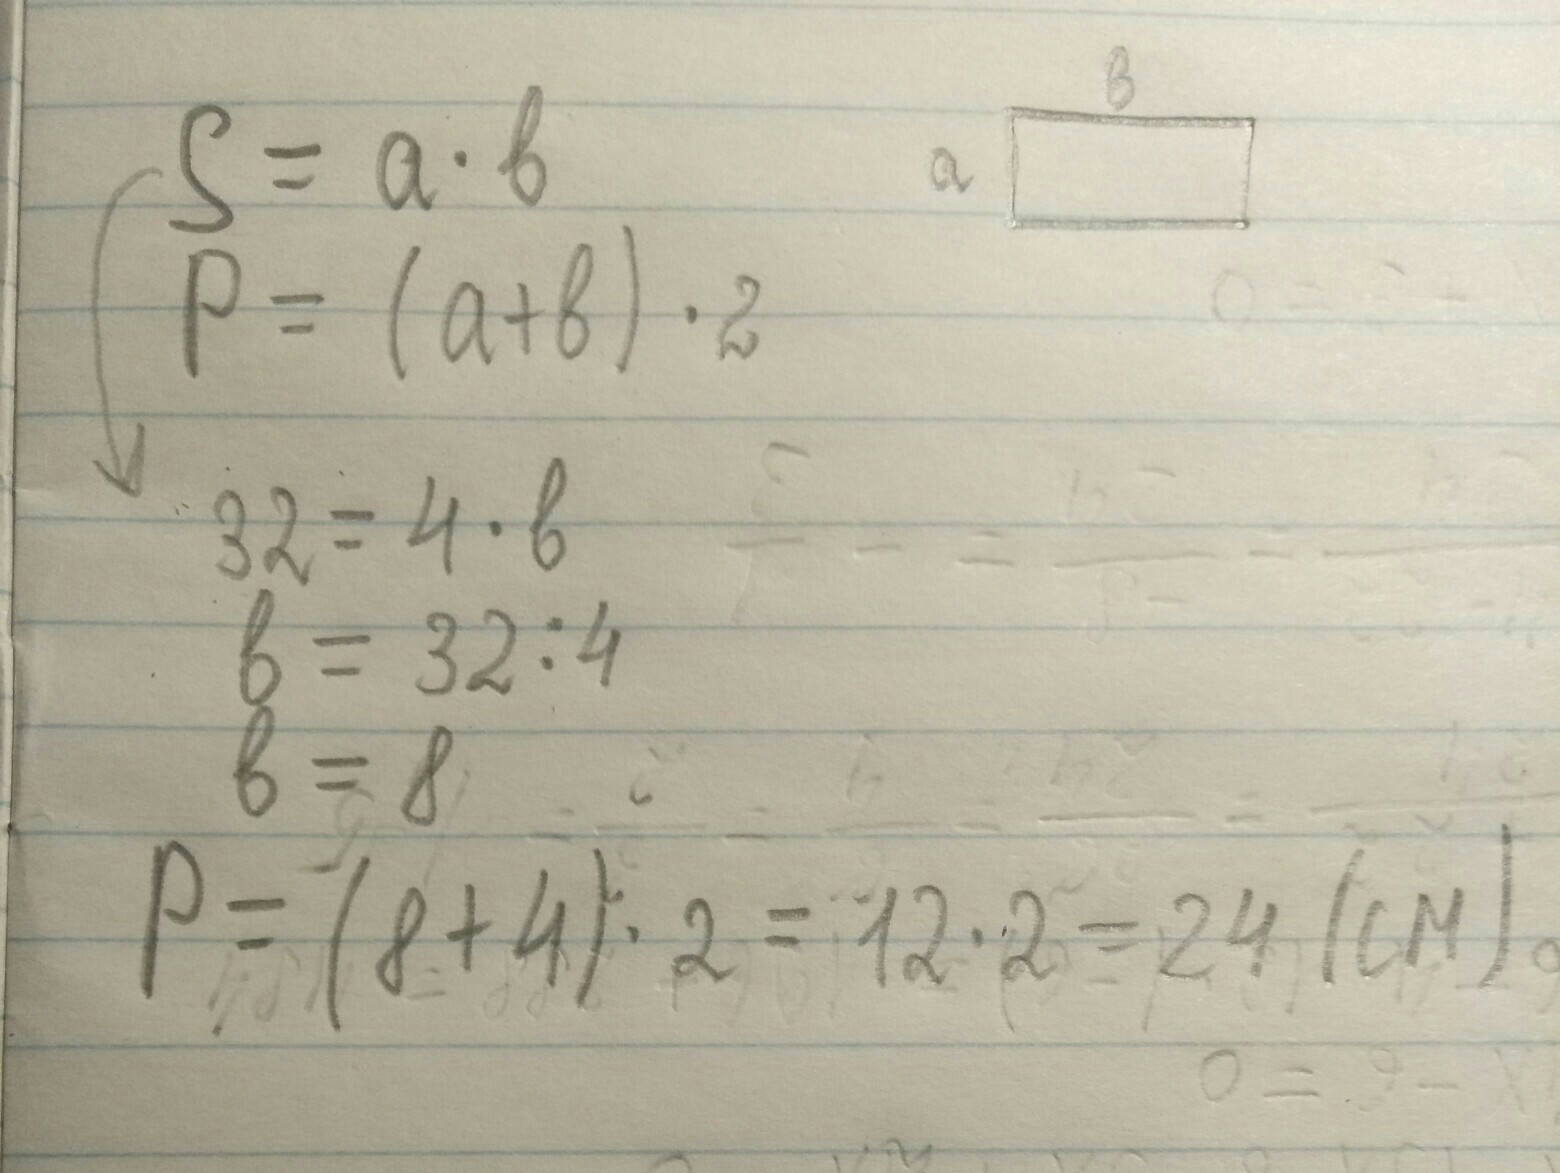 S = a · b
b
a
P = (a+b) · 2
32 = 4 · b
b = 32 : 4
b = 8
P = (8+4) · 2 = 12 · 2 = 24 (см)